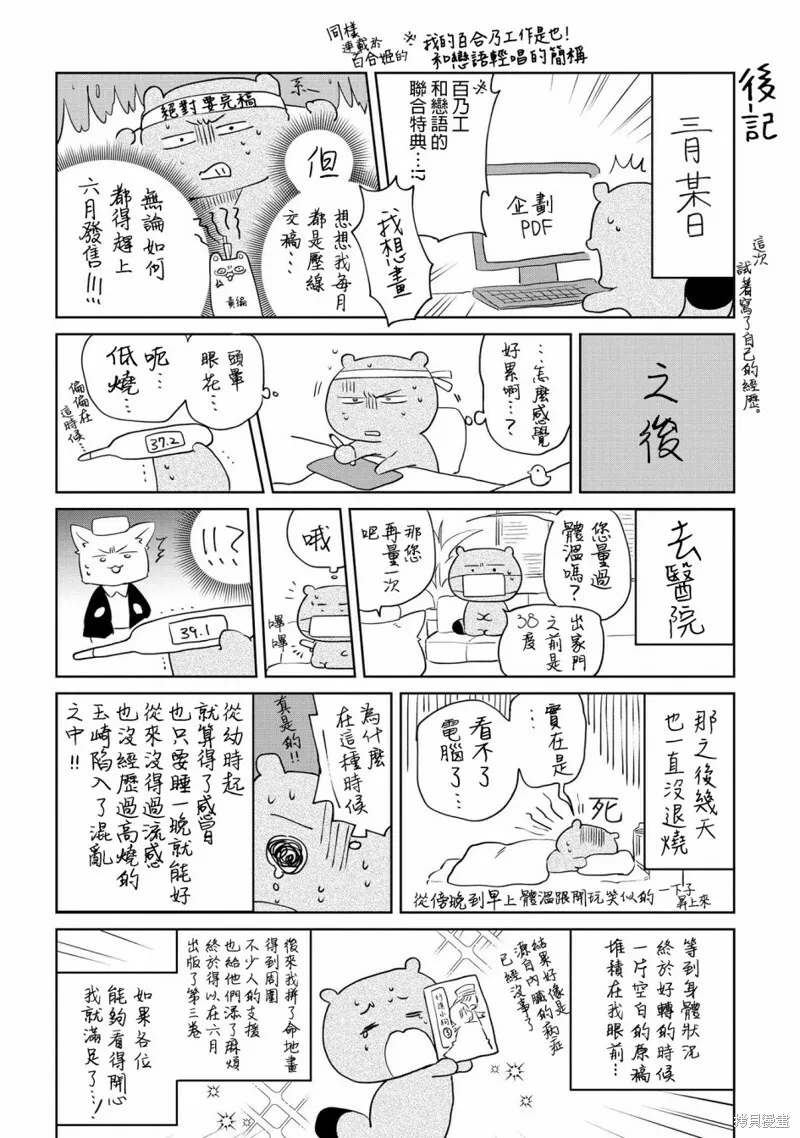 後記
這次
試著寫了自己的經歷。
三月某日
企劃
PDF
※我的百合乃工作是也！
和戀語輕唱的簡稱
同樣
連載於
百合姬的
※
百乃工
和戀語的
聯合特典…!!
我想畫
但
想想我每月
都是壓線
交稿…
絕對要完稿
責編
無論如何
都得趕上
六月發售!!!
之後
…怎麼感覺
好累啊…?
頭暈
眼花…
呃…
低燒…
偏偏在
這時候…
37.2
去醫院
您量過
體溫嗎?
出家門
之前是
38度
那您
再量一次
吧
哦
嗶
嗶
!!?
39.1
那之後幾天
也一直沒退燒
…實在是
看不了
電腦了…
死
從傍晚到早上 體溫跟開玩笑似的
一下子
昇上來
為什麼
在這種時候
真是的!!
從幼時起
就算得了感冒
也只要睡一晚就能好
從來沒得過流感
也沒經歷過高燒的
玉崎陷入了混亂
之中!!
等到身體狀況
終於好轉的時候
一片空白的原稿
堆積在我眼前…
結果好像是
源自內臟的病症
已經沒事了
後來我拼了命地畫
得到周圍
不少人的支援
也給他們添了麻煩
終於得以在六月
出版了第三卷
如果各位
能夠看得開心
我就滿足了…!
拷貝漫畫